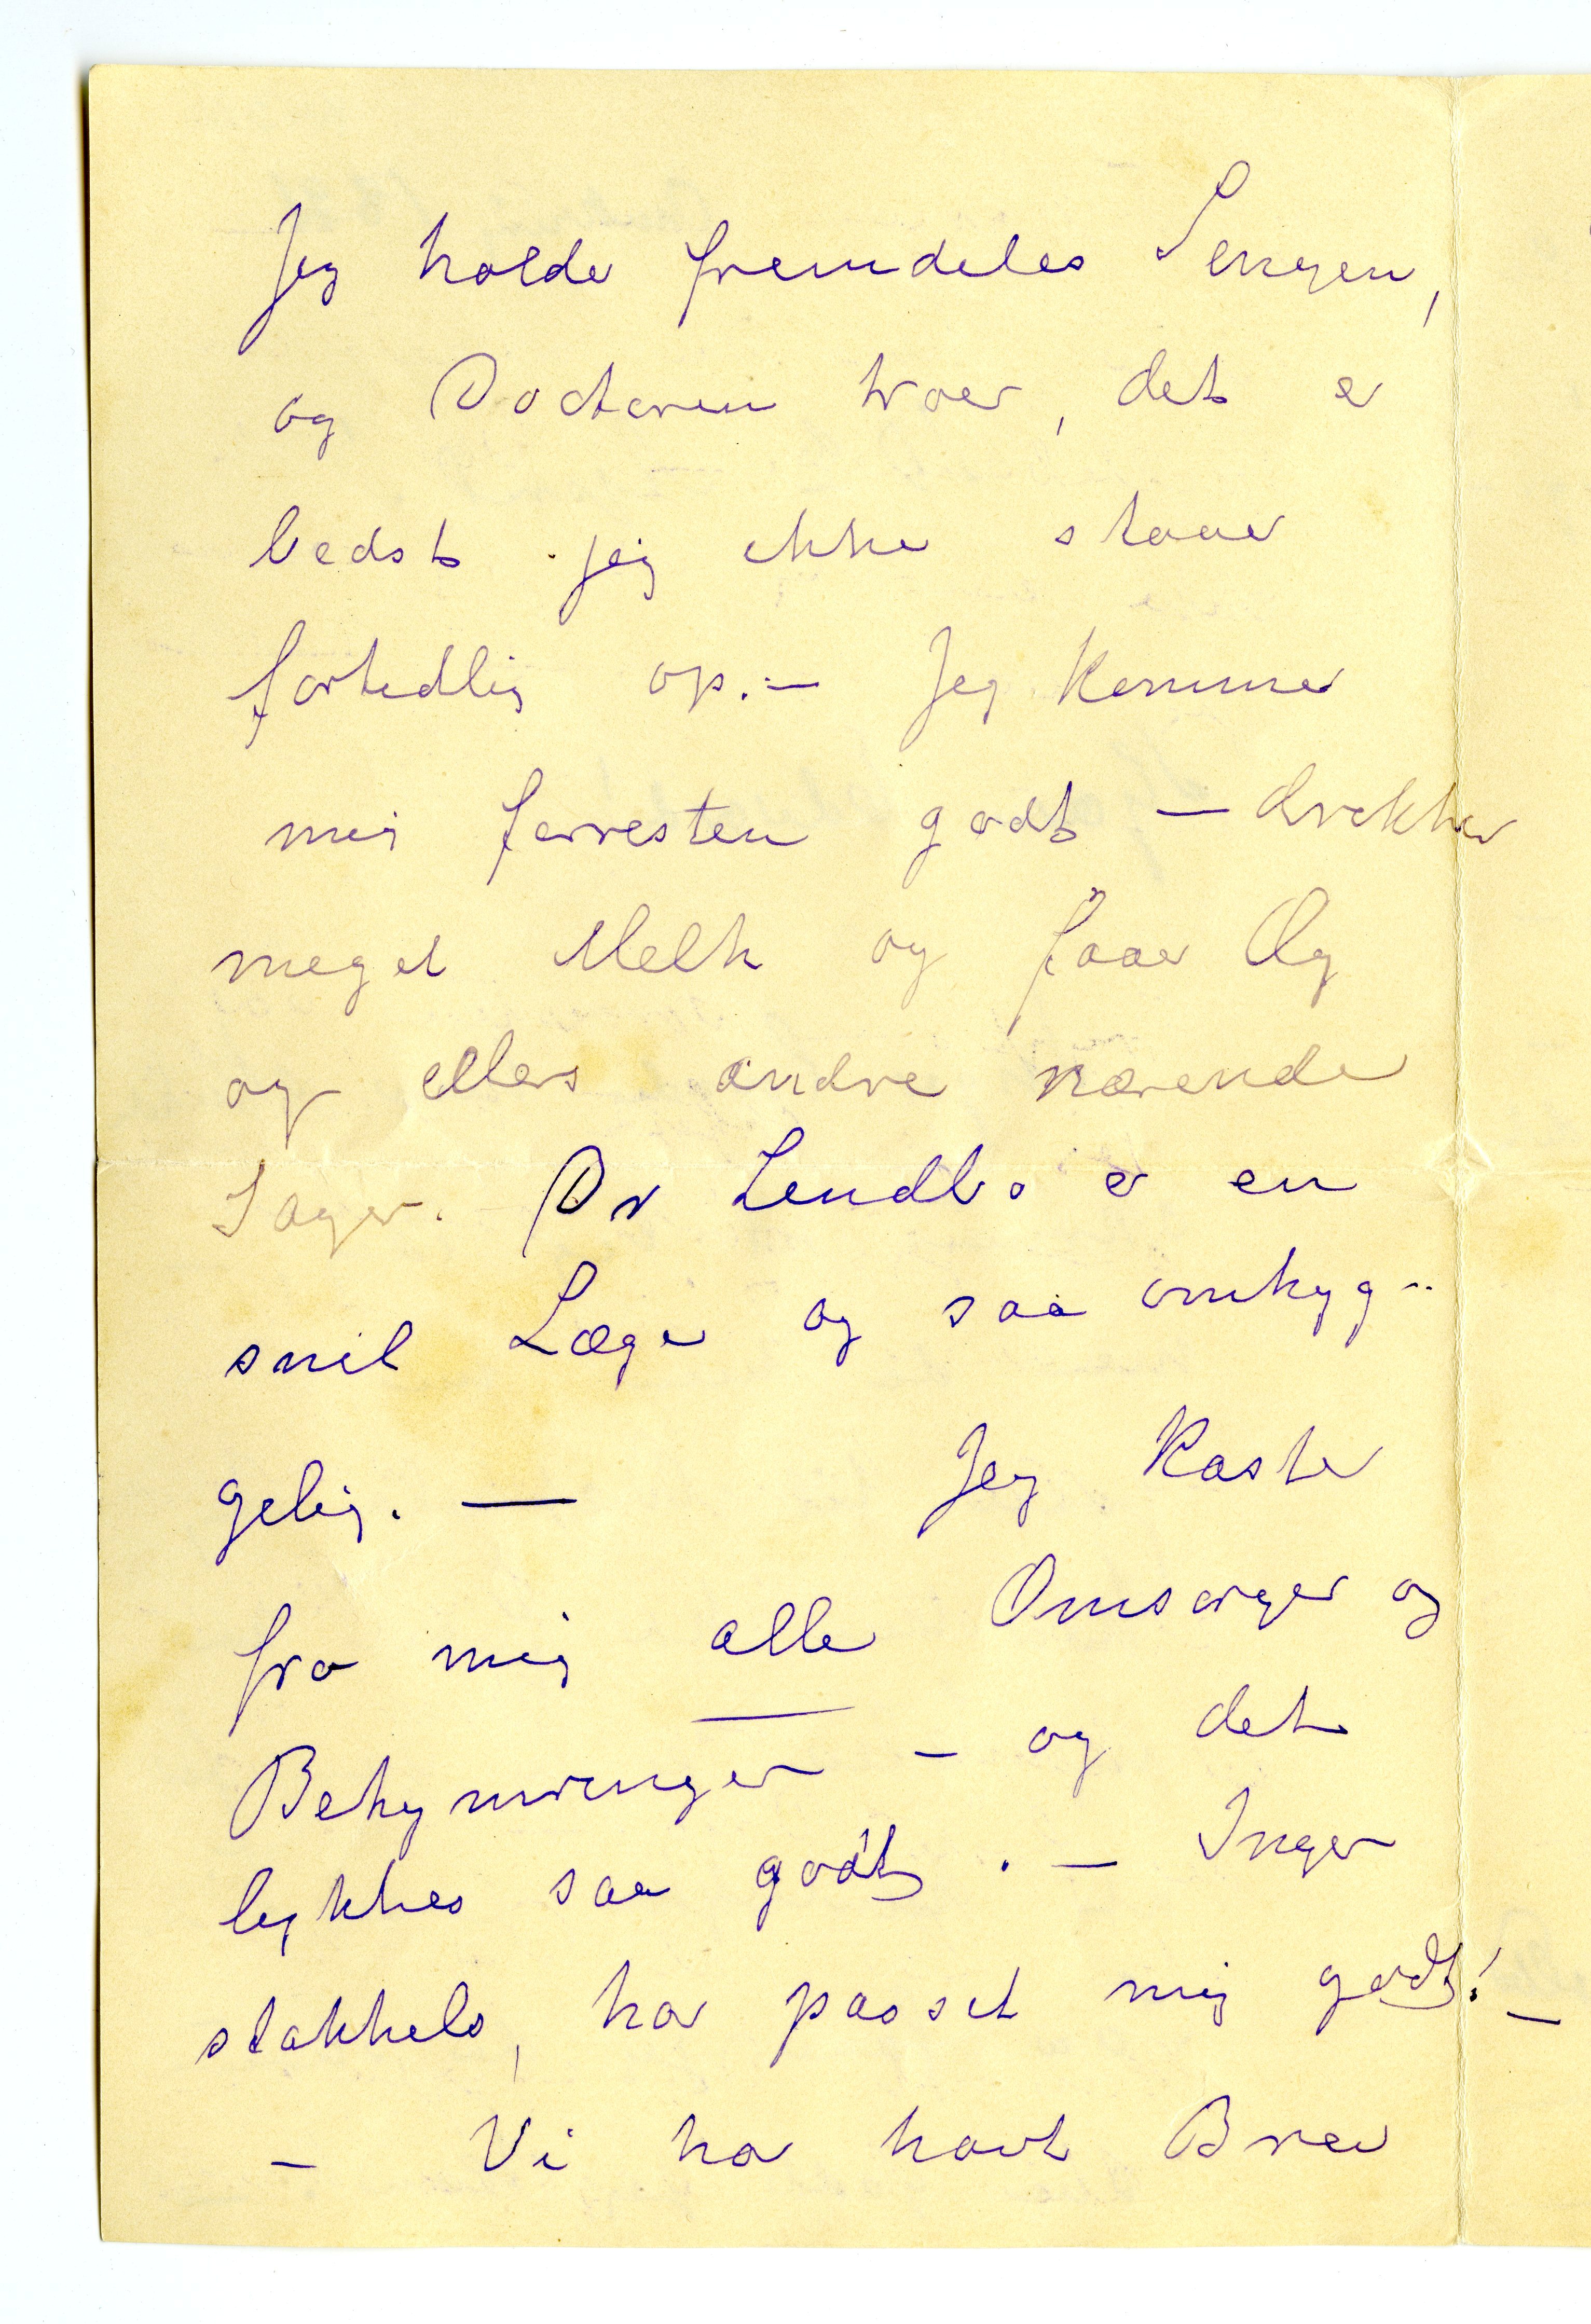 Jeg holder fremdeles Sengen,
og Doctoren troer, det er
bedst jeg ikke staaer
fortidlig op. – Jeg kommer
mig forresten godt – drikker
meget Melk og faaer Æg
og ellers andre nærende
Sager. Dr Lendb. er en
snil Læge og saa omhyg-
gelig. — Jeg kaster
fra mig alle Omsorger og
Bekymringer – og det
lykkes saa godt. – Inger
stakkels, har passet mig godt! –
– Vi har havt Brev